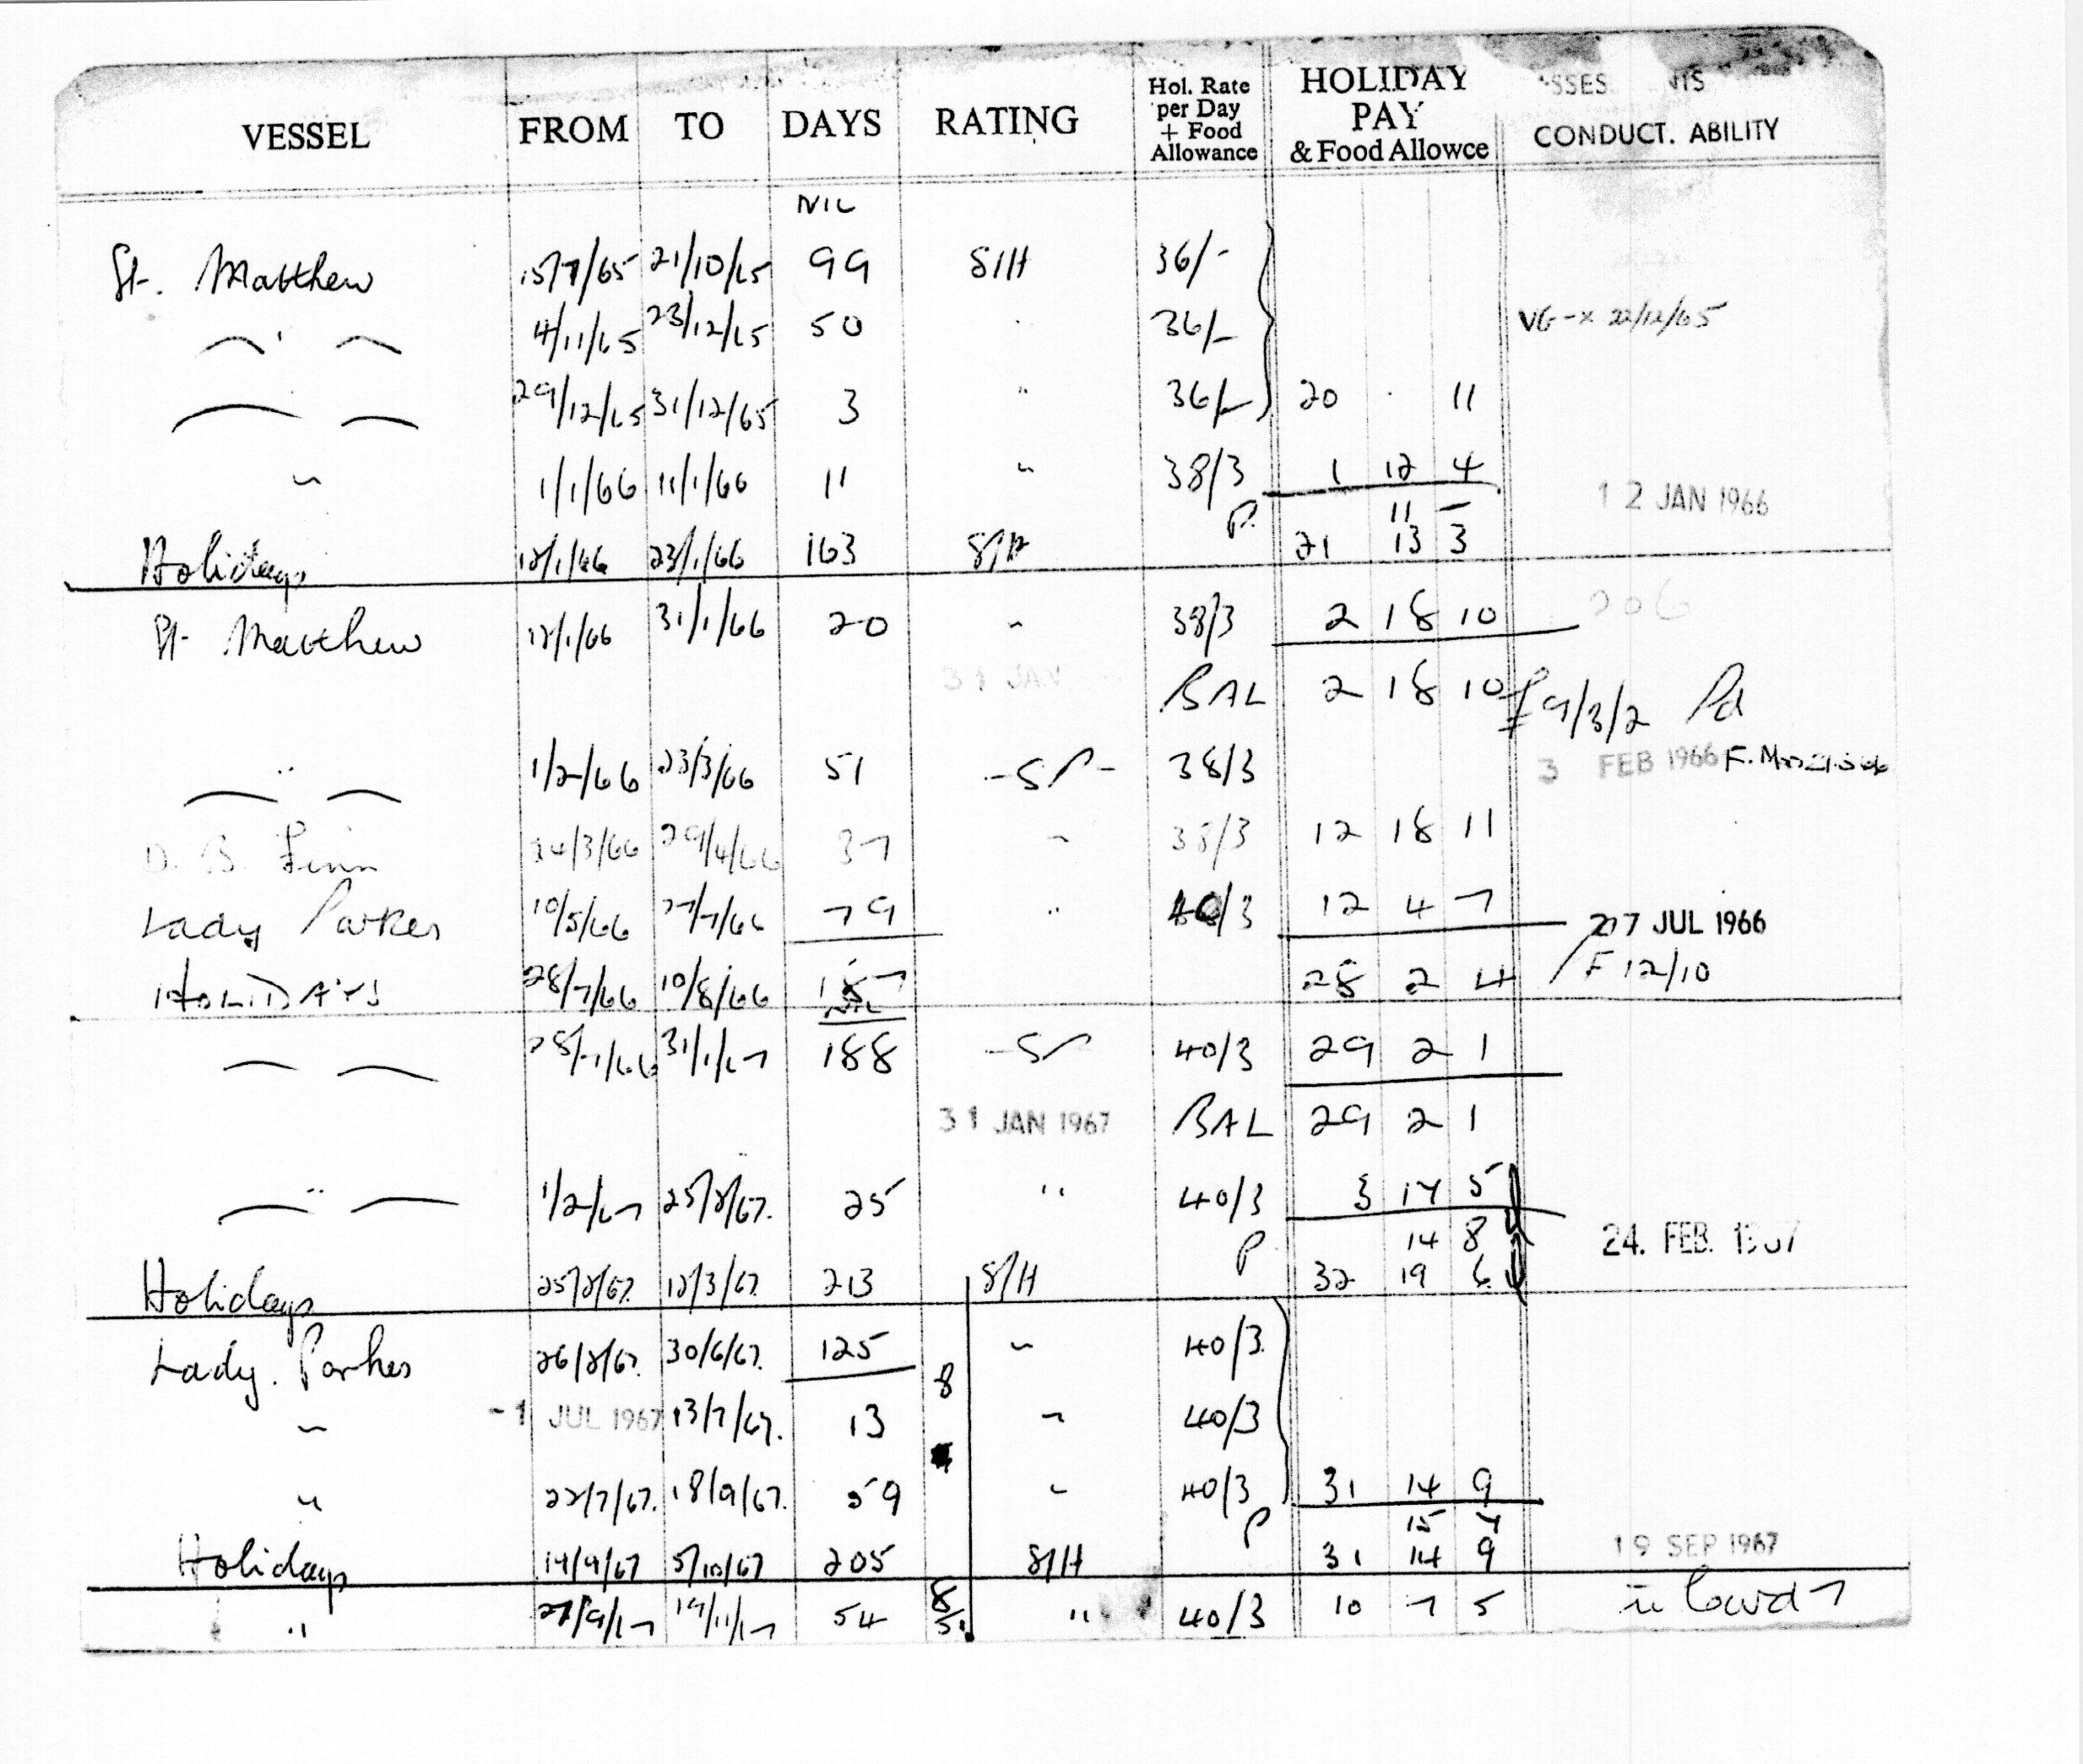 VESSEL FROM TO DAYS RATING Hol. Rate per Day + Food Allowance HOLIDAY PAY & Food Allowce CONDUCT. ABILITY
NIL
St. Matthew 15/7/65 21/10/65 99 S/H 36/-
4/11/65 23/12/65 50 36/- VG -x 22/12/65
29/12/65 31/12/65 3 " 36/- 20 . 11
" 1/1/66 11/1/66 11 " 38/3 1 12 4
12 JAN 1966
P. 11 -
Holidays 12/1/66 23/1/66 163 S/H 21 13 3
St. Matthew 12/1/66 31/1/66 20 " 38/3 2 18 10 206
31 JAN BAL 2 18 10 £9/3/2 Pd
" 1/2/66 23/3/66 51 38/3 3 FEB 1966
D. B. Finn 24/3/66 29/4/66 37 " 38/3 12 18 11
Lady Parkes 10/5/66 27/7/66 79 " 40/3 12 4 7 27 JUL 1966
HOLIDAYS 28/7/66 10/8/66 187 28 2 4 F 12/10
NIL
28/7/66 31/1/67 188 40/3 29 2 1
31 JAN 1967 BAL 29 2 1
" 1/2/67 25/2/67. 25 " 40/3 3 17 5
P 14 8 24. FEB. 1967
Holidays 25/2/67. 12/3/67. 213 S/H 32 19 6
Lady. Parkes 26/2/67. 30/6/67. 125 " 40/3.
8
" -1 JUL 1967 13/7/67. 13 " 40/3
" 22/7/67. 18/9/67. 59 " 40/3 31 14 9
P 15 4
Holidays 19/9/67 5/10/67 205 S/H 31 14 9 19 SEP 1967
" 27/9/67 19/11/67 54 " 40/3 10 7 5